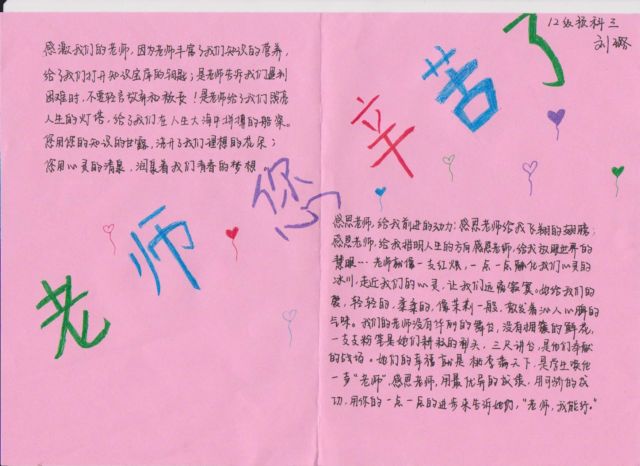 感激我们的老师，因为老师丰富了我们知识的营养，
给了我们打开知识宝库的钥匙；是老师告诉我们遇到
困难时，不要轻言放弃和放长！是老师给了我们照亮
人生的灯塔，给了我们在人生大海中拼搏的船桨。
您用您的知识的甘露，浇开了我们理想的花朵；
您用心灵的清泉，润湿着我们青春的梦想
老师您辛苦了
12级预科三
刘璐
感恩老师，给我前进的动力；感恩老师给我飞翔的翅膀；
感恩老师，给我指明人生的方向感恩老师，给我放眼世界的
慧眼…老师就像一支红烛，一点一点融化我们心灵的
冰川，走近我们的心灵，让我们远离寂寞。她给我们的
爱，轻轻的，柔柔的，像茉莉一般，散发着沁人心脾的
气味。我们的老师没有华丽的舞台，没有簇拥的鲜花，
一支支粉笔是她们耕耘的犁头，三尺讲台，是他们奉献
的战场。她们的幸福就是桃李满天下，是学生喊他
一声“老师”，感恩老师，用最优异的成绩，用可骄的成
功，用你的一点一点的进步来告诉她们，“老师，我能行。”